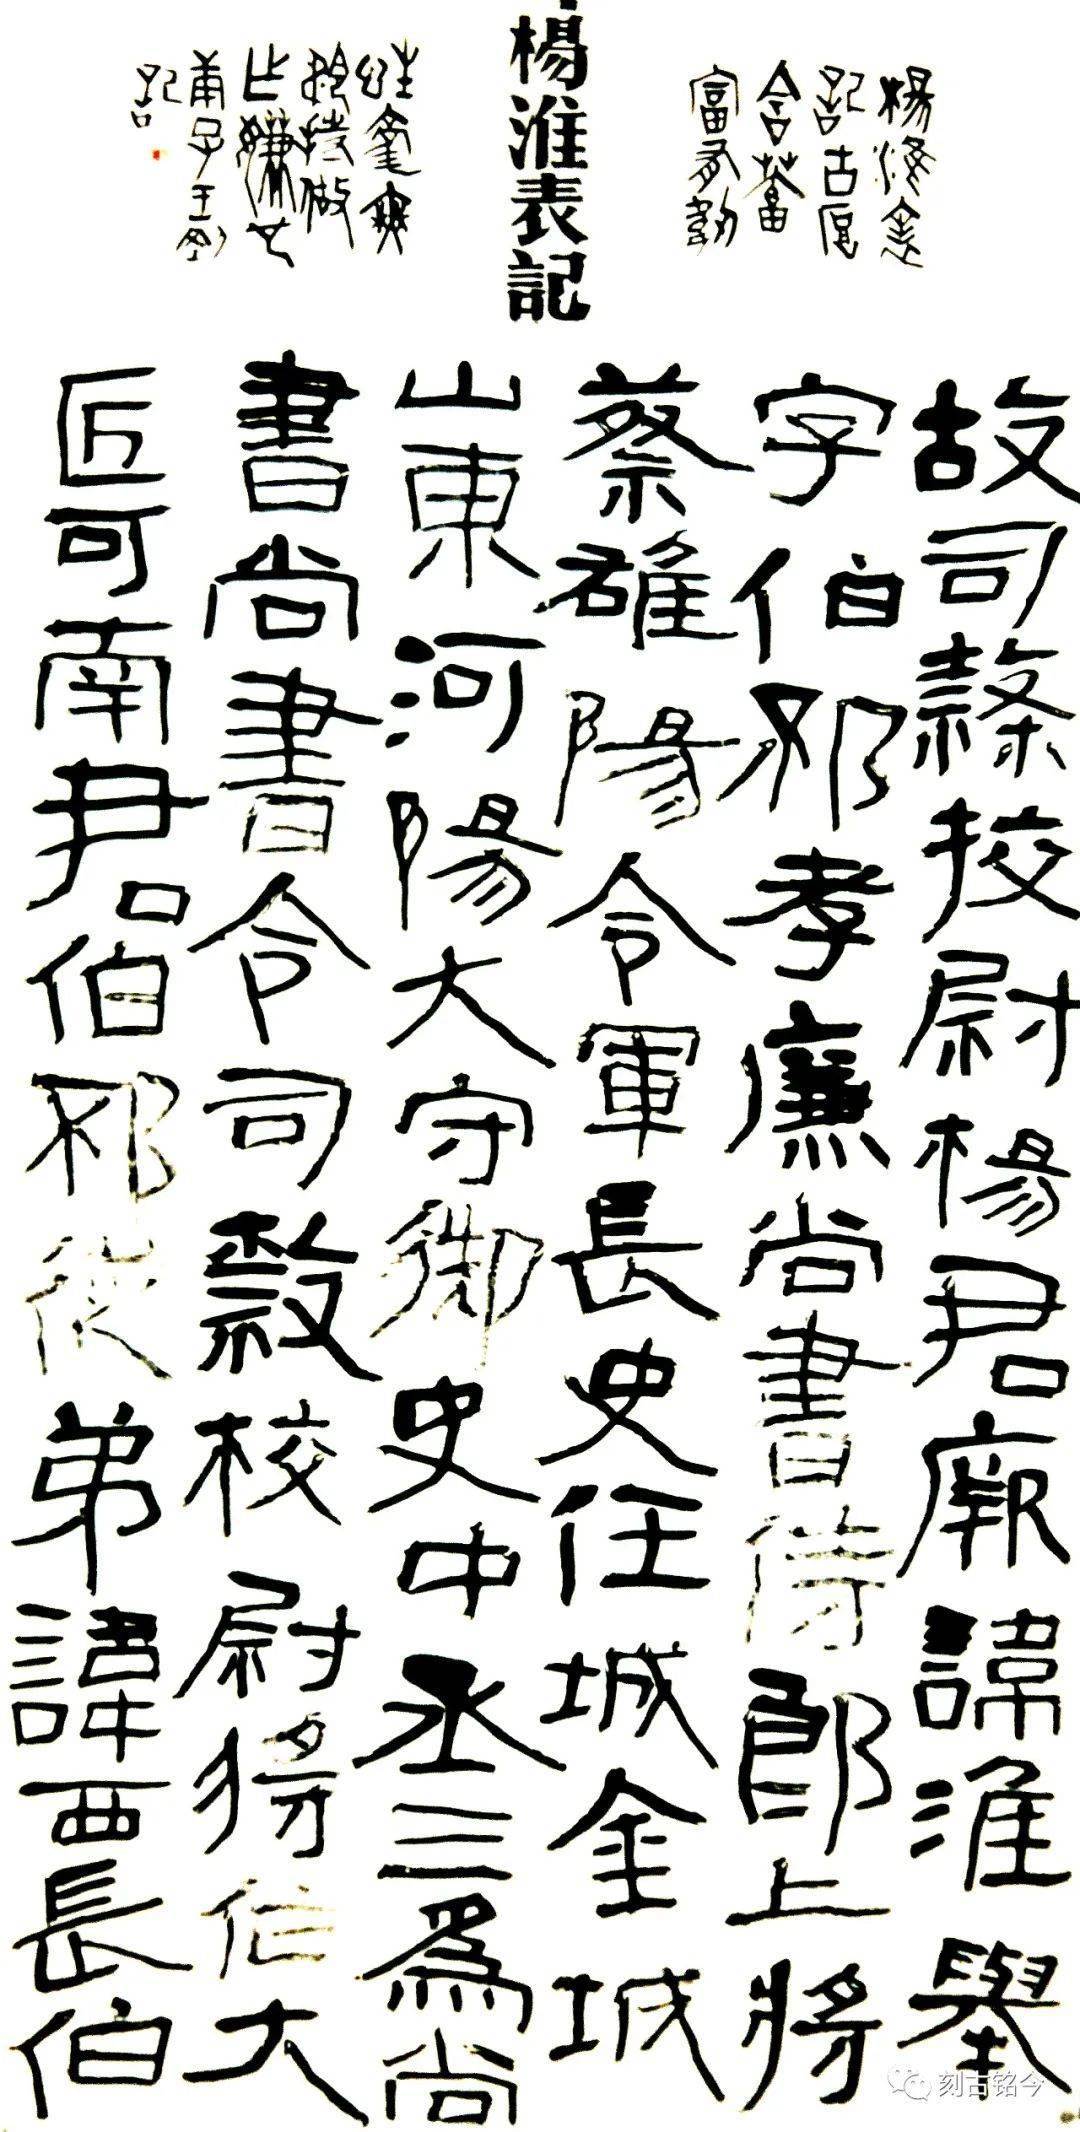 楊淮表記
楊淮表
記古厚
含蓄
故司隸挍尉楊君厥諱淮舉
字伯邳孝廉尚書侍郎上將
蔡雒陽令軍長史任城金城
山東河陽大守御史中丞三為尚
書尚書令司隸校尉將作大
匠可南君伯邳從弟諱西長伯
刻古铭今